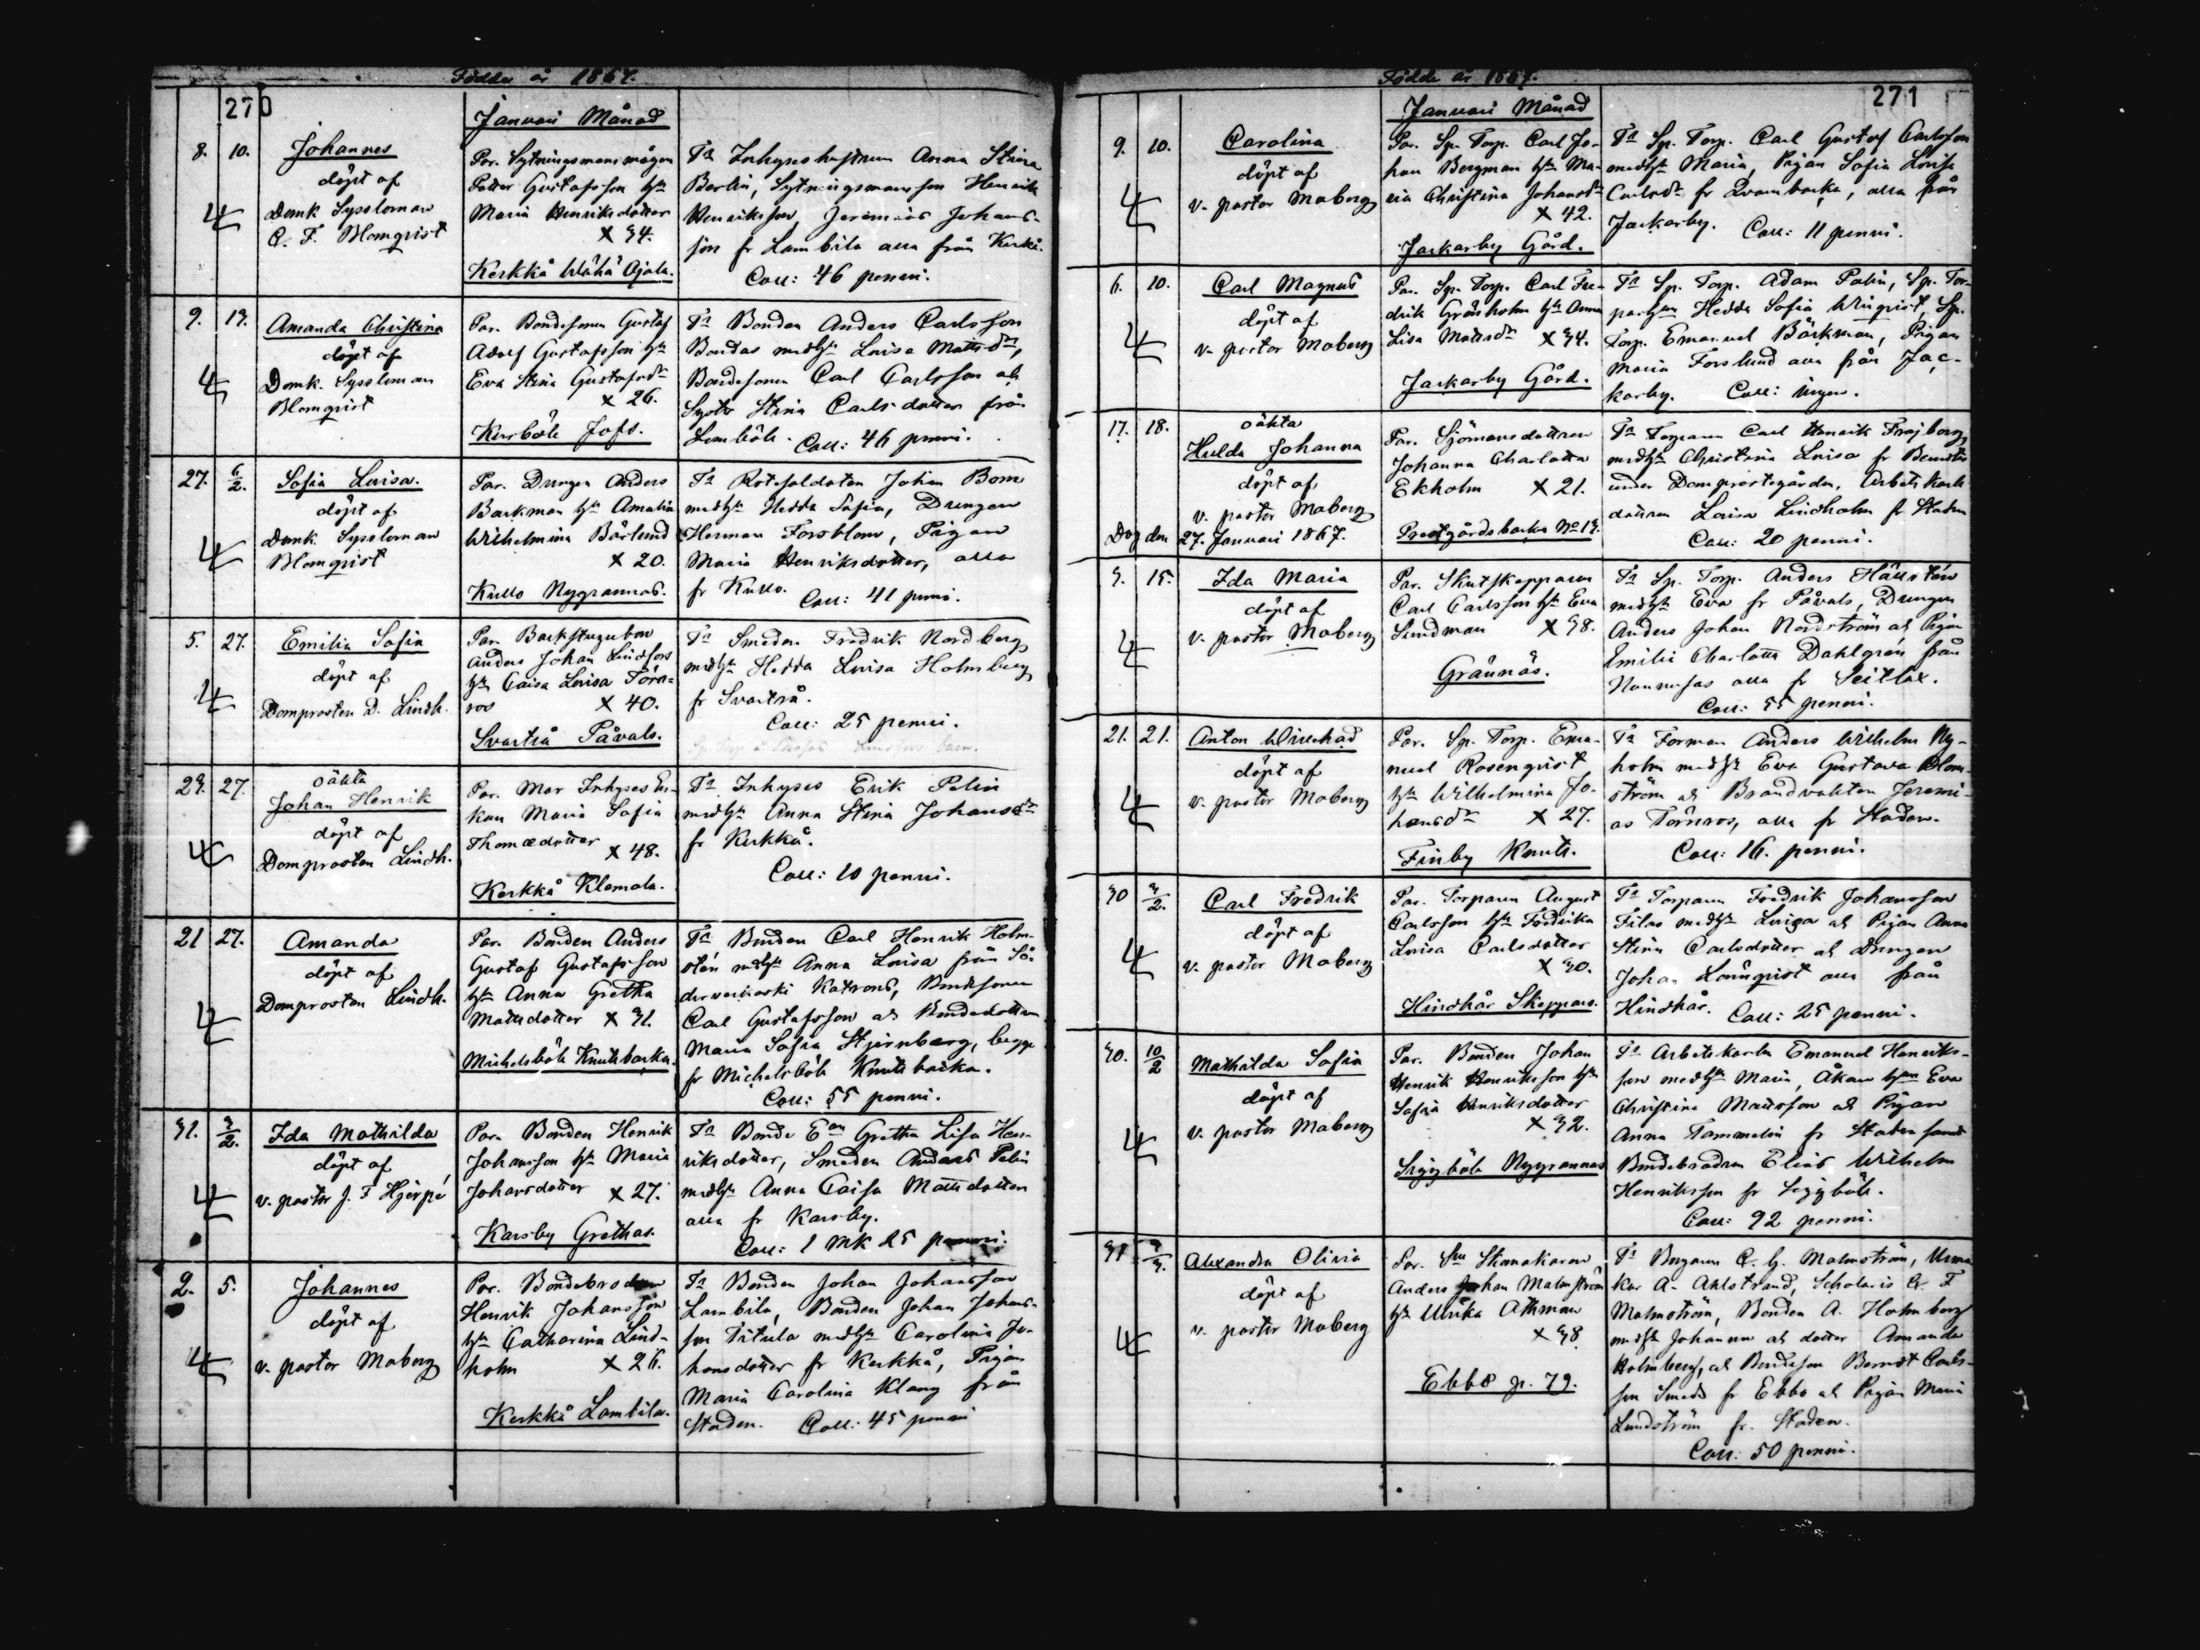 Födde år 1867.
270
Januari Månad
8. 10.
Johannes
döpt af
Domk. Syssloman
C. F. Blomqvist
Par. Sytningsmans mågen
Petter Gustafsson hu
Maria Henriksdotter
X 34.
Kerkkå Wähä Ojala.
Ta Inhyseshustrun Anna Stina
Berlin, Sytningsmanson Henrik
Henriksson, Jeremias Johans-
son fr Lambila alla från Kerkkå.
Coll: 46 penni.
9. 13.
Amanda Christina
döpt af
Domk. Syssloman
Blomqvist
Par. Bondesonen Gustaf
Adolf Gustafsson
Eva Stina Gustafsdr
X 26.
Kerböle Jofs.
Ta Bonden Anders Carlsson
Bondas Lovisa Mattsdr,
Bondesonen Carl Carlsson och
Syster Stina Carlsdotter från
Coll: 46 penni.
27. 6/2.
Sofia Lovisa.
döpt af
Domk. Syssloman
Blomqvist
Par. Drängen Anders
Backman Amalia
Wilhelmina Bärlund
X 20.
Kullo Nygrannas.
Ta Rotesoldaten Johan Bom
Hedda Sofia, Drängen
Herman Forsblom, Pigan
Maria Henriksdotter, alla
fr Kullo. Coll: 41 penni.
5. 27.
Emilia Sofia
döpt af
Domprosten D. Lindh.
Par. Backstugubon
Anders Johan Lindfors
Caisa Lovisa Törn-
ros X 40.
Svartså Påvals.
Ta Smeden Fredrik Nordberg
Hedda Lovisa Holmberg
fr Svartså.
Coll: 25 penni.
23. 27.
oäkta
Johan Henrik
döpt af
Domprosten Lindh.
Par. Mor Inhyses En-
kan Maria Sofia
Thomædotter
X 48.
Kerkkå Klemola.
Ta Inhyses Erik Pelin
Anna Stina Johansdr
fr Kerkkå.
Coll: 10 penni.
21 27.
Amanda
döpt af
Domprosten Lindh.
Par. Bonden Anders
Gustaf Gustafsson
Anna Gretha
Mattsdotter X 31.
Michelsböle Knutsbacka.
Ta Bonden Carl Henrik Holm-
stén Anna Lovisa från Sö-
derveckoski Katrons, Bondesonen
Carl Gustafsson och Bondedottren
Maria Sofia Stjernberg, begge
fr Michelsböle Knutsbacka.
Coll: 55 penni.
31. 3/2.
Ida Mathilda
döpt af
v. pastor J. F. Hjerpe
Par. Bonden Henrik
Johansson Maria
Johansdotter X 27.
Karsby Grethas.
Ta Bonde Gretha Lisa Hen-
riksdotter, Smeden Anders Pelin
Anna Caisa Mattsdotter
alla fr Karsby.
Coll: 1 mk 25 penni.
2. 5.
Johannes
döpt af
v. pastor Moberg
Par. Bondebrodren
Henrik Johansson
Catharina Lind-
holm X 26.
Kerkkå Lambila.
Ta Bonden Johan Johansson
Lambila, Bonden Johan Johans-
son Titula Carolina Jo-
hansdotter fr Kerkkå, Pigan
Maria Carolina Klang från
Staden. Coll: 45 penni
Födde år 1867.
271
Januari Månad
9. 10.
Carolina
döpt af
v. pastor Moberg
Par. Sp. Torp. Carl Jo-
han Bergman Ma-
ria Christina Johansdr
X 42.
Jackarby Gård.
Ta Sp. Torp. Carl Gustaf Carlsson
Maria, Pigan Sofia Lovisa
Carlsdr fr Qvarnbacka, alla från
Jackarby. Coll: 11 penni.
6. 10.
Carl Magnus
döpt af
v. pastor Moberg
Par. Sp. Torp. Carl Fre-
drik Grönholm Anna
Lisa Mattsdr X 34.
Jackarby Gård.
Ta Sp. Torp. Adam Palin, Sp. Tor-
Hedda Sofia Winqvist, Sp.
Torp. Emanuel Bäckman, Pigan
Maria Forslund alla från Jac-
karby. Coll: ingen.
17. 18.
oäkta
Hulda Johanna
döpt af
v. pastor Moberg
Dog den 27. Januari 1867.
Par. Sjömansdottren
Johanna Charlotta
Ekholm X 21.
Prestgårdsbacka No 13.
Ta Torparen Carl Henrik Frejborg
Christina Lovisa fr
under Domprostegården, Arbetskarls
dottren Lovisa Lindholm fr Staden
Coll: 20 penni.
3. 15.
Ida Maria
döpt af
v. pastor Moberg
Par. Skutskepparen
Carl Carlsson Eva
Sundman X 38.
Grännäs.
Ta Sp. Torp. Anders Hällstén
Eva fr Påvals, Drängen
Anders Johan Nordström och Pigan
Emilie Charlotta Dahlgrén från
alla fr Seitlax.
Coll: 55 penni.
21. 21.
Anton Willehad
döpt af
v. pastor Moberg
Par. Sp. Torp. Ema-
nuel Rosenqvist
Wilhelmina Jo-
hansdr X 27.
Finby Knuts.
Ta Forman Anders Wilhelm Ny-
holm Eva Gustava Blom-
ström och Brandvakten Jeremi-
as Törnros, alla fr Staden.
Coll: 16. penni.
30 3/2.
Carl Fredrik
döpt af
v. pastor Moberg
Par. Torparen August
Carlsson Fredrika
Lovisa Carlsdotter
X 30.
Hindhår Skeppars.
Ta Torparen Fredrik Johansson
Filas Lovisa och Pigan Anna
Stina Carlsdotter och Drängen
Johan Lönnqvist alla från
Hindhår. Coll: 25 penni.
30. 10/2
Mathilda Sofia
döpt af
v. pastor Moberg
Par. Bonden Johan
Henrik Henriksson
Sofia Henriksdotter
X 32.
Siggböle Nygrannas
Ta Arbetskarln Emanuel Henriks-
son Maria, Åkaren Eva
Christina Mattsson och Pigan
Anna Tammelin fr Staden samt
Bondebrodren Elias Wilhelm
Henriksson fr Siggböle.
Coll: 92 penni.
31
Alexandra Olivia
döpt af
v. pastor Moberg
Par. Skomakaren
Anders Johan Malmström
Ulrika Athman
X 38.
Ebbo p. 79.
Ta Borgaren C. G. Malmström, Urma-
kar A. Ahlstrand, Scholaris C. F
Malmström, Bonden A. Holmberg
Johanna och dotter Amanda
Holmberg, och Bondeson Berndt Carls-
son Smeds fr Ebbo och Pigan Maria
Lundström fr. Staden.
Coll: 50 penni.